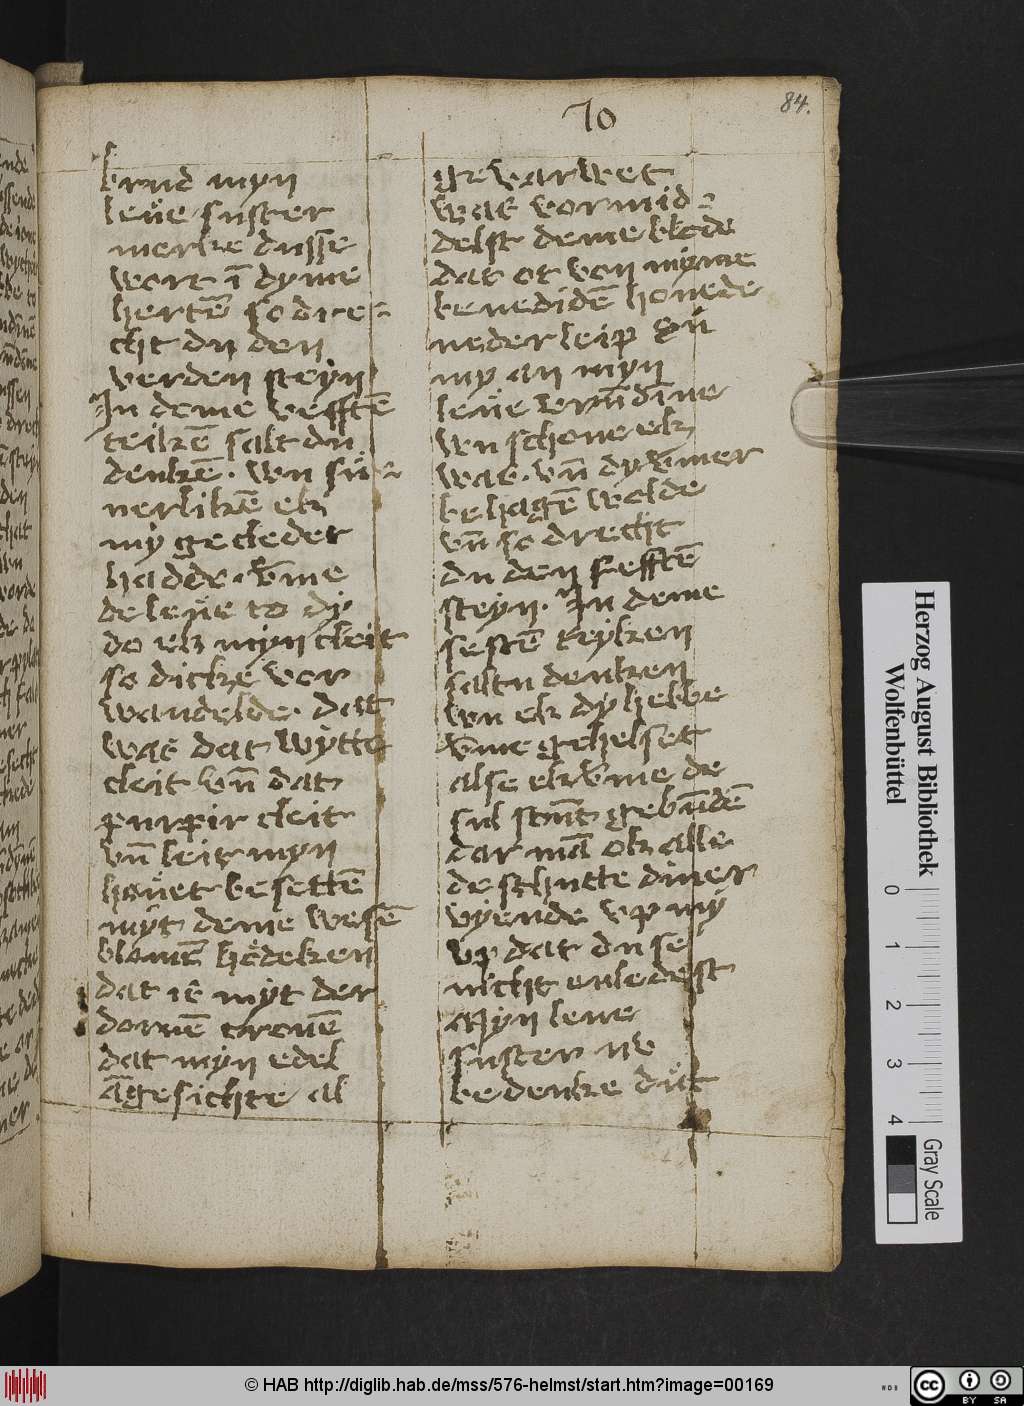 70
84.
brud myn
leue suster
merke dusse
wort ī dyme
hertē so dre-
cht du den
verden steyn
In deme vefftē
teikē salt du
denkē. wu sů-
nerlikē ek
my gecleder
hadde. v̄me
de leue to dy
do ek myn cleit
so dicke vor
wandelde. dat
was dat wytte
cleit vn̄ dat
purpir cleit
vn̄ leit myn
houet besettē
myt deme
blomē hodeken
dat is myt der
dornē cronē
dat myn edel
āgesichte al
gevarwet
was vormid-
delst deme blode
dat ot von myme
benedidē houede
neder leip Sů
my an myn
leue vrūdīne
wu schone ek
was. vn̄ dy v̄mer
behagē wolde
vn̄ so drecht
du den fefftē
steyn. In deme
sestē teyken
saltu denken
wu ek dy hebbe
v̄me gehelset
alse ek v̄me de
sul stūt gebūdē
dar mā ok alle
de schutte diner
vyende vp my
vp dat du se
nicht enledest
Myn leue
suster nv
bedenke důt
Herzog August Bibliothek
Wolfenbüttel
0 1 2 3 4
Gray Scale
© HAB http://diglib.hab.de/mss/576-helmst/start.htm?image=00169
WDB
cc BY SA